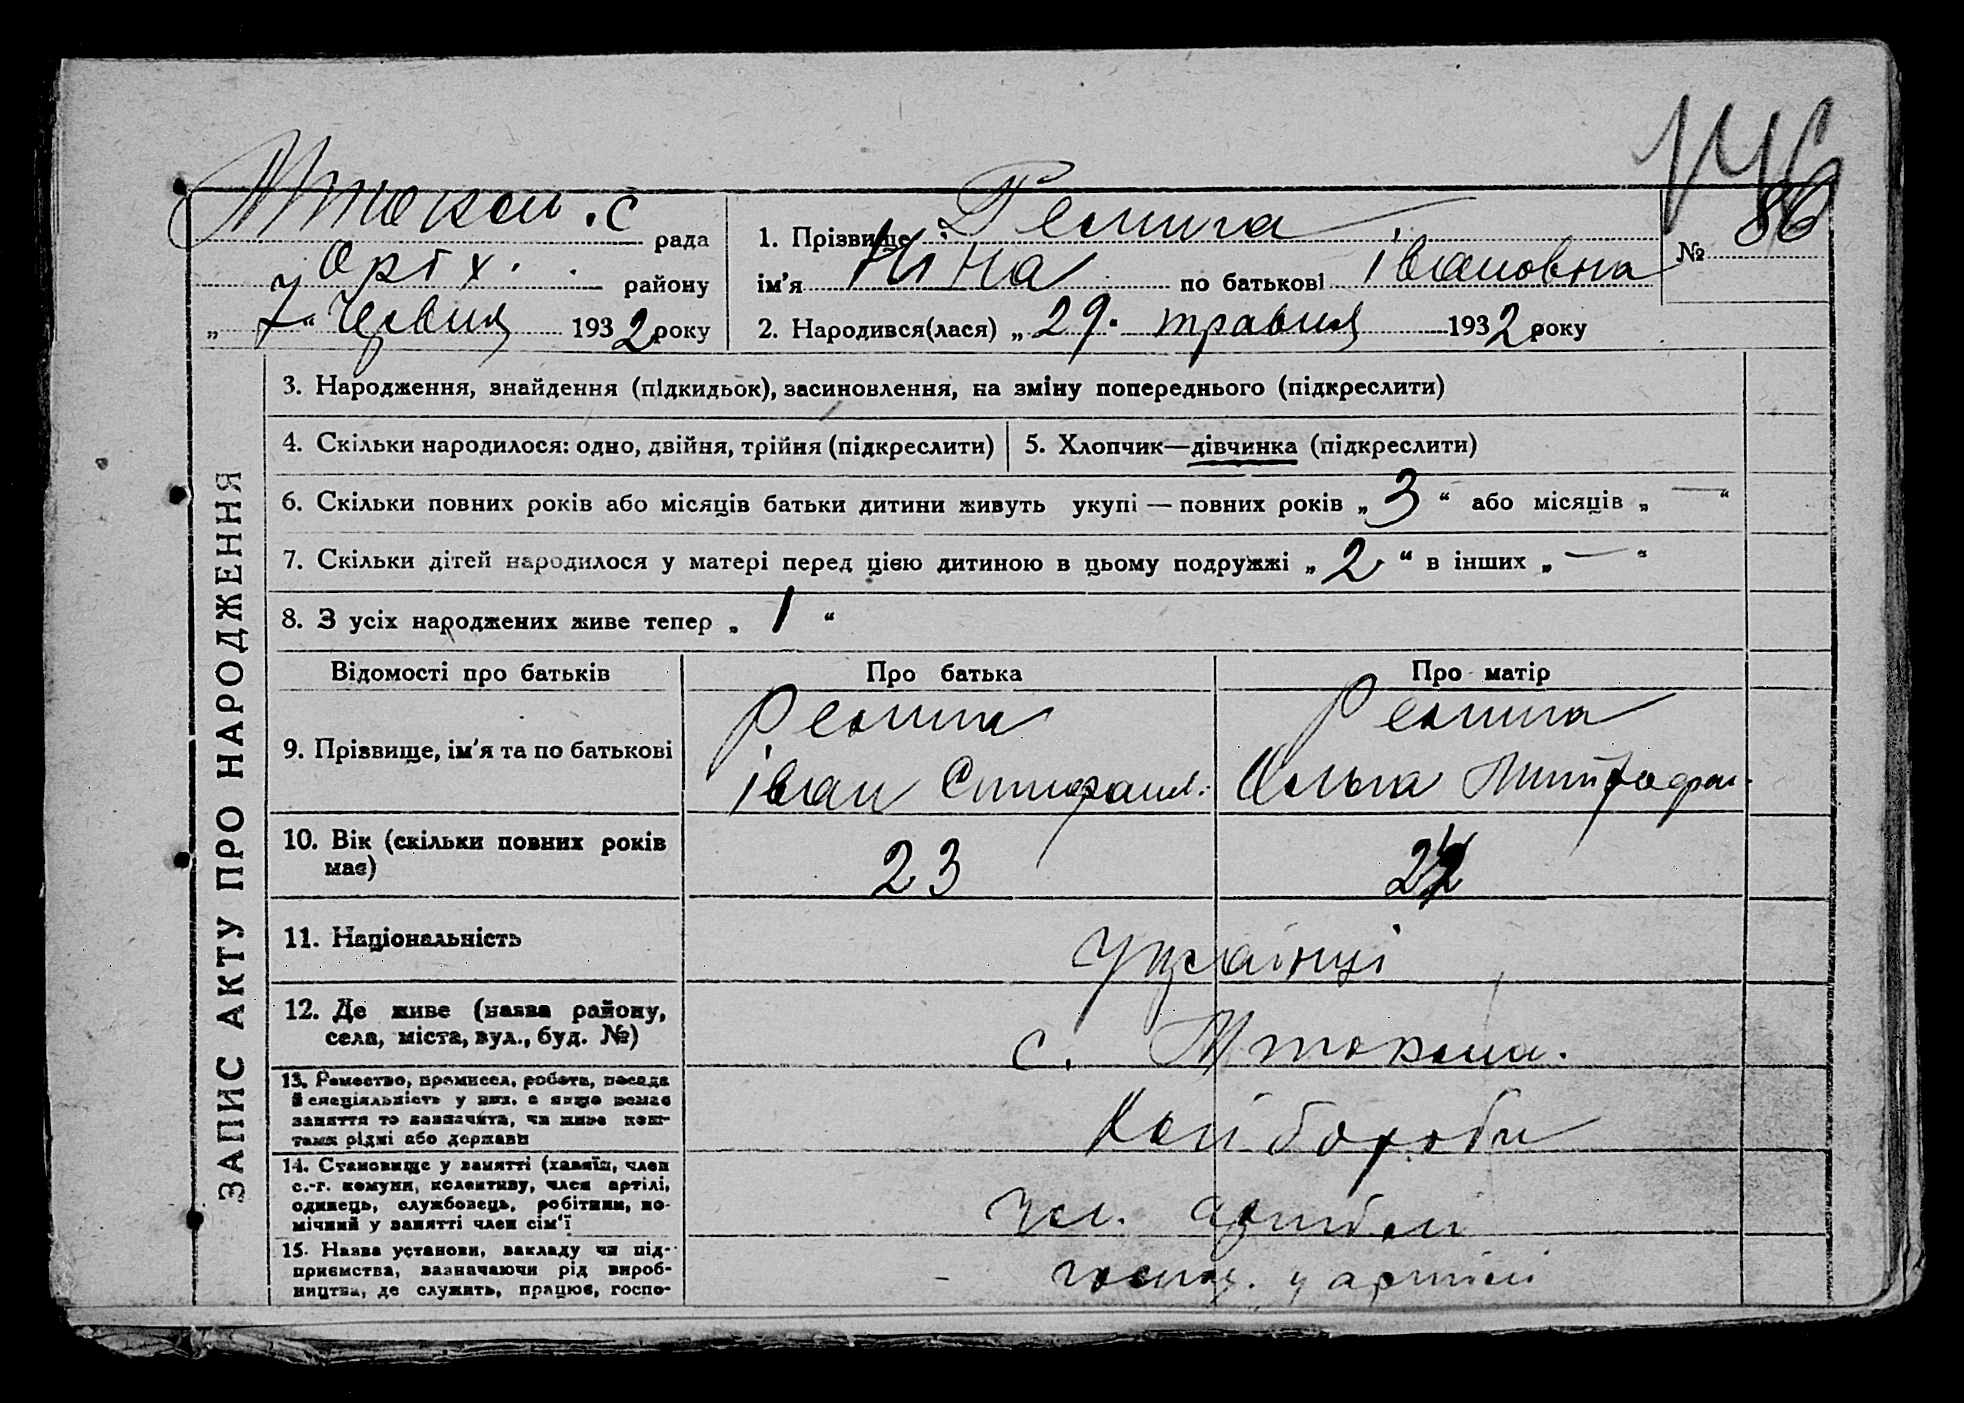 146
рада
1. Прізвище
№ 86
Оріх. району
ім'я Ніна по батькові Івановна
„ 7 “ Червня 1932 року
2. Народився(лася) „ 29. травня 1932 року
ЗАПИС АКТУ ПРО НАРОДЖЕННЯ
3. Народження, знайдення (підкидьок), засиновлення, на зміну попереднього (підкреслити)
4. Скільки народилося: одно, двійня, трійня (підкреслити)
5. Хлопчик—дівчинка (підкреслити)
6. Скільки повних років або місяців батьки дитини живуть укупі — повних років „ 3 “ або місяців „ — “
7. Скільки дітей народилося у матері перед цією дитиною в цьому подружжі „ 2 “ в інших „ — “
8. З усіх народжених живе тепер „ 1 “
Відомості про батьків
Про батька
Про матір
9. Прізвище, ім'я та по батькові
Іван
Ольга
10. Вік (скільки повних років має)
23
11. Національність
Українці
12. Де живе (назва району,
села, міста, вул., буд. №)
с.
13. Ремество, промисел, робота, посада
й спеціяльність у них, а якщо немає
заняття то зазначити, чи живе кош-
тами рідні або держави
14. Становище у занятті (хазяїн, член
с.-г. комуни, колективу, член артілі,
одинець, службовець, робітник, по-
мічний у занятті член сім'ї
15. Назва установи, закладу чи під-
приємства, зазначаючи рід вироб-
ництва, де служить, працює, госпо-
у артілі